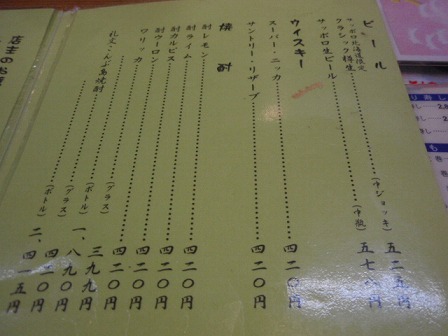 ビール
サッポロ北海道限定
クラシック樽生 (中ジョッキ) 五二五円
サッポロ生ビール (中瓶) 五七八円
ウイスキー
スーパー・ニッカ 四二〇円
サントリー・リザーブ 四二〇円
焼酎
酎レモン 四二〇円
酎ライム 四二〇円
酎カルピス 四二〇円
酎ウーロン 四二〇円
ワリッカ 四二〇円
礼文・こんぶ島焼酎 (グラス) 三九九円
(ボトル) 一、八九〇円
(グラス) 四二〇円
(ボトル) 二、四一五円
店主のお